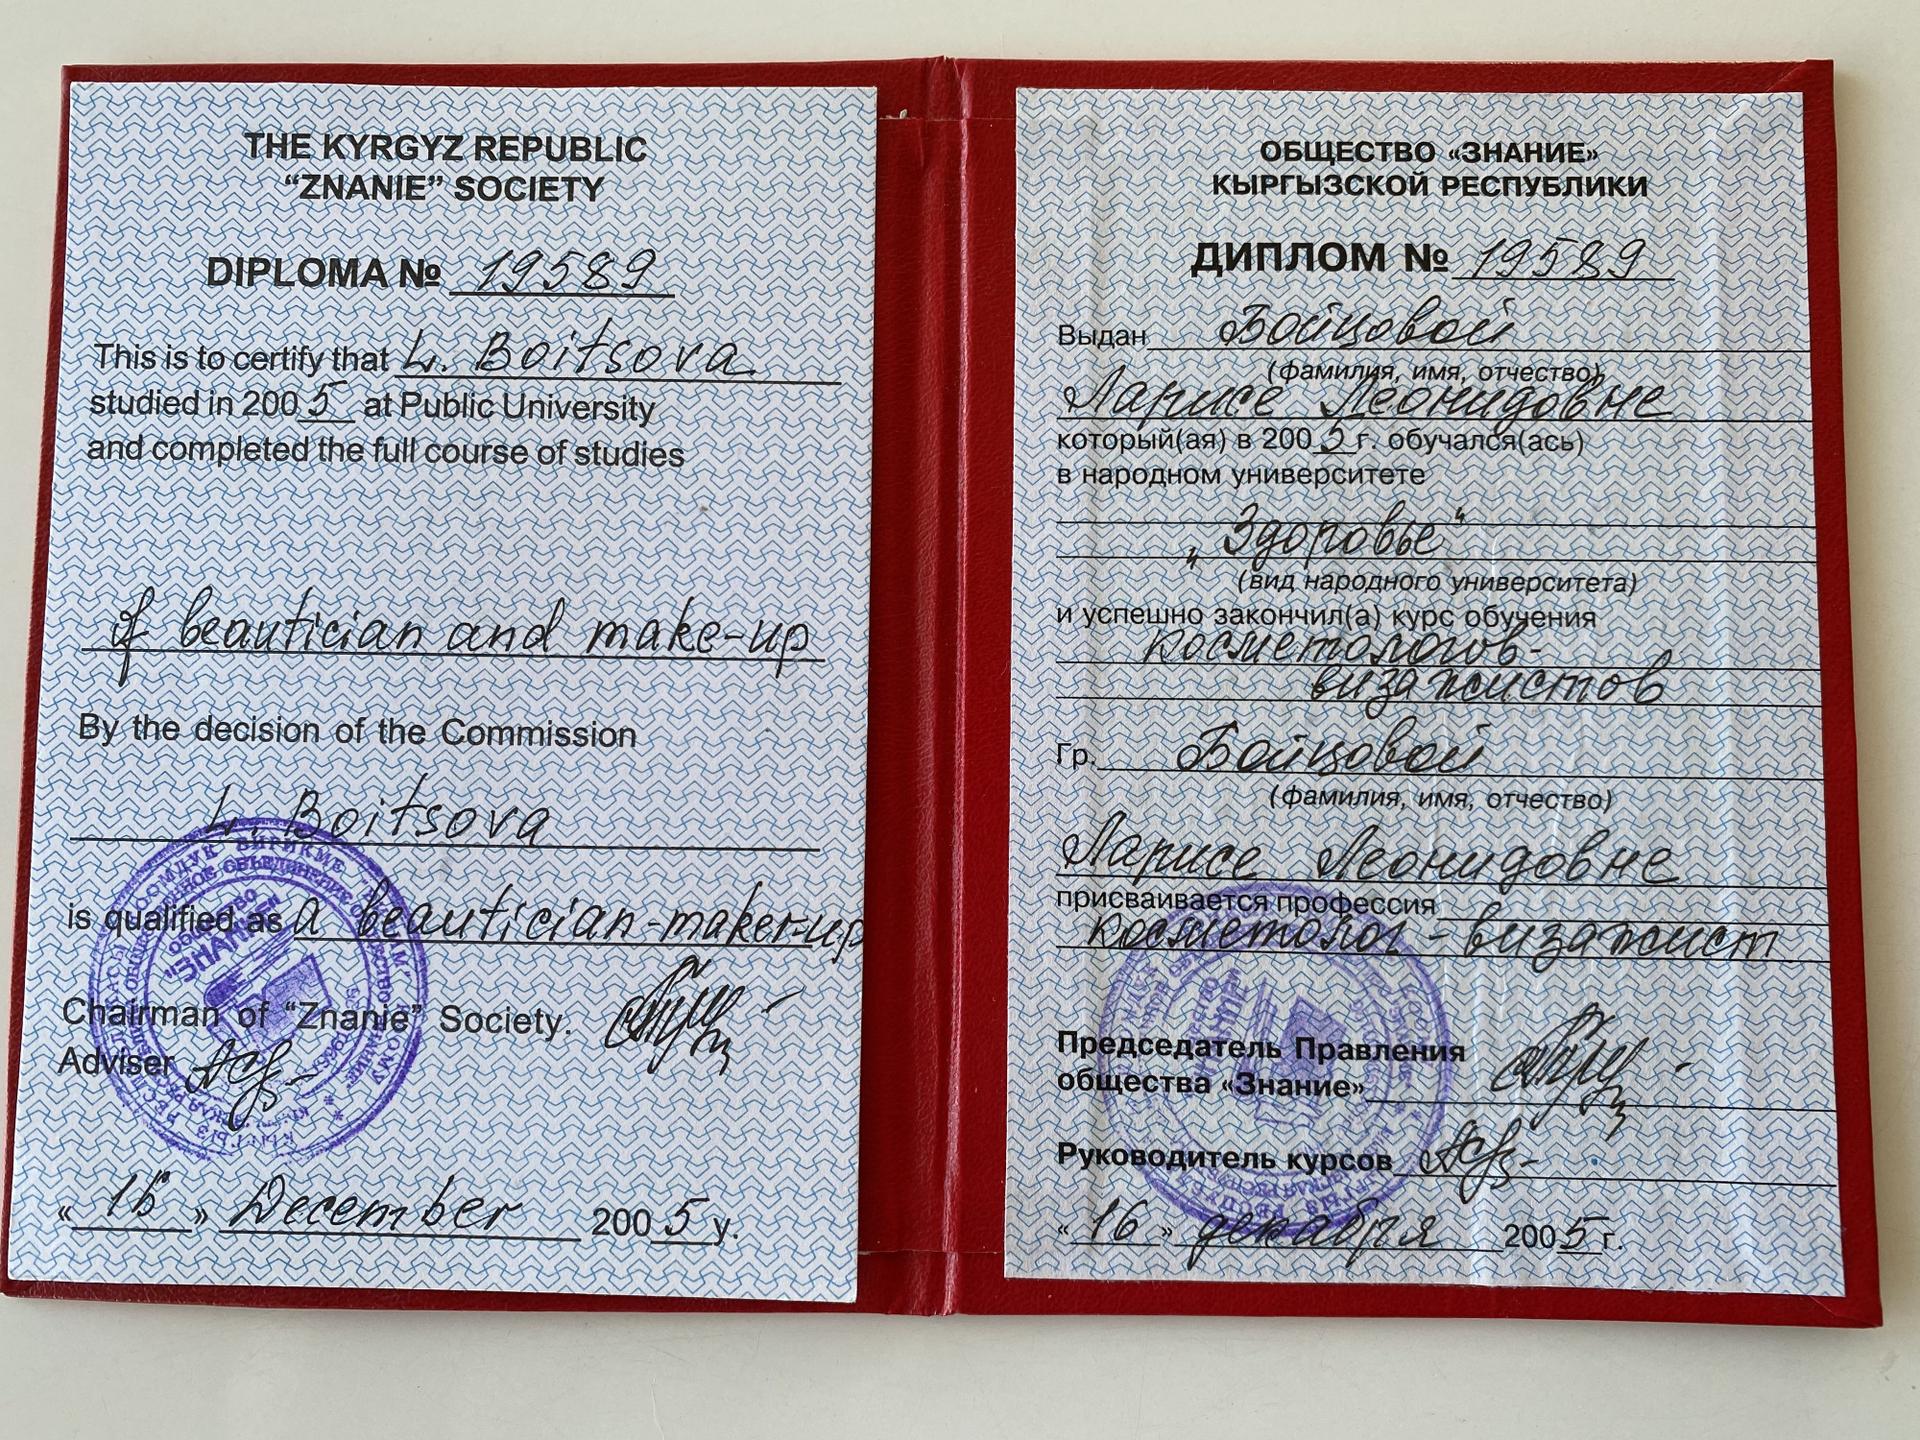 THE KYRGYZ REPUBLIC
“ZNANIE” SOCIETY
DIPLOMA № 19589
This is to certify that L. Boitsova
studied in 2005 at Public University
and completed the full course of studies
of beautician and make-up
By the decision of the Commission
L. Boitsova
is qualified as a beautician-maker-up
Chairman of “Znanie” Society.
Adviser
«16» December 2005 y.
ОБЩЕСТВО «ЗНАНИЕ»
КЫРГЫЗСКОЙ РЕСПУБЛИКИ
ДИПЛОМ № 19589
Выдан Бойцовой
(фамилия, имя, отчество)
Ларисе Леонидовне
который(ая) в 2005 г. обучался(ась)
в народном университете
„Здоровье“
(вид народного университета)
и успешно закончил(а) курс обучения
косметологов-
визажистов
Гр. Бойцовой
(фамилия, имя, отчество)
Ларисе Леонидовне
присваивается профессия
косметолог-визажист
Председатель Правления
общества «Знание»
Руководитель курсов
«16» декабря 2005 г.